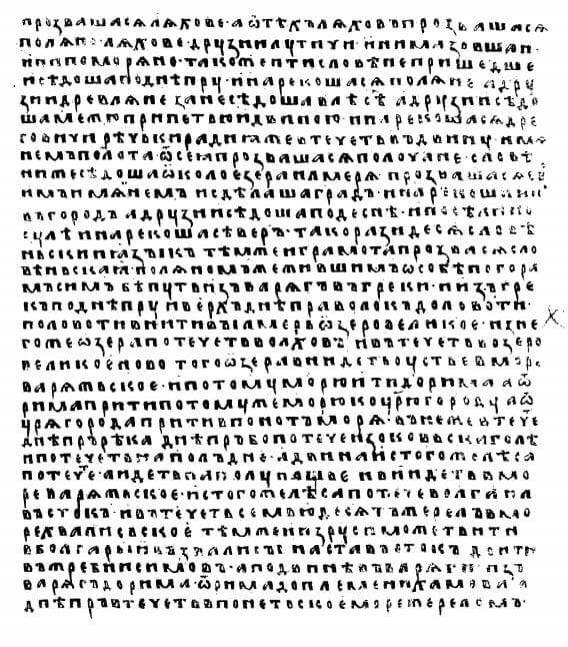 прозвашасѧ лѧхове · а ѿ тѣхъ лѧховъ прозвашасѧ
полѧне · лѧхове · друзии лутичи · ини мазовшан ·
ини поморѧне · такоже и ти словѣне пришедше
и сѣдоша по днѣпру · и нарекошасѧ полѧне · а дру
зии древлѧне зане сѣдоша в лѣсѣ а друзии сѣдо
ша межю припетью и двиною · и нарекошасѧ дре
говичи · рѣчьки ради ꙗже втечеть въ двину · имѧ
немъ полота ѿ сеꙗ прозвашасѧ полочане · словѣ
ни же сѣдоша ѡколо езера илмерѧ · прозвашасѧ св
имъ имѧнемъ и сдѣлаша градъ · и нарекоша и но
въгородъ а друзии сѣдоша по деснѣ · и по семи и по
сулѣ и нарекошасѧ сѣверъ · тако разидесѧ словѣ
ньскии ꙗзыкъ тѣмже и грамота прозвасѧ сло
вѣньскаꙗ · полѧномъ же жившимъ ѡсобѣ по гора
мъ симъ бѣ путь изъ варѧгъ въ греки · и изъ гре
къ по днѣпру и верхъ днѣпра волокъ до ловоти ·
по ловоти внити въ илмерь ѡзеро великое · из не
гоже ѡзера потечеть волховъ и втечеть в озеро
великое ново того ѡзера внидеть оустье в море
варѧжьское · и по тому морю ити до рима а ѿ
рима прити по томуже морю ко црюгороду а ѿ
црѧгорода прити в понотъ морѧ въ неже втече
днѣпръ рѣка днѣпръ бо потече из оковьскаго лѣ
потечеть на полъдне · а двина ис тогоже лѣса
потече а идеть на полунощье и внидеть в мо
ре варѧжьское · ис тогоже лѣса потече волга на
въстокъ · и втечеть семьюдесѧтъ жерелъ в мо
ре хвалисьское · тѣмже и из руси можеть ити
в болгары и въ хвалисы на въстокъ доити
въ жребии симовъ · а по двинѣ въ варѧги · изъ
варѧгъ до рима · ѿ рима до племени хамова а
днѣпръ втечеть в понетьское море жереломъ ·